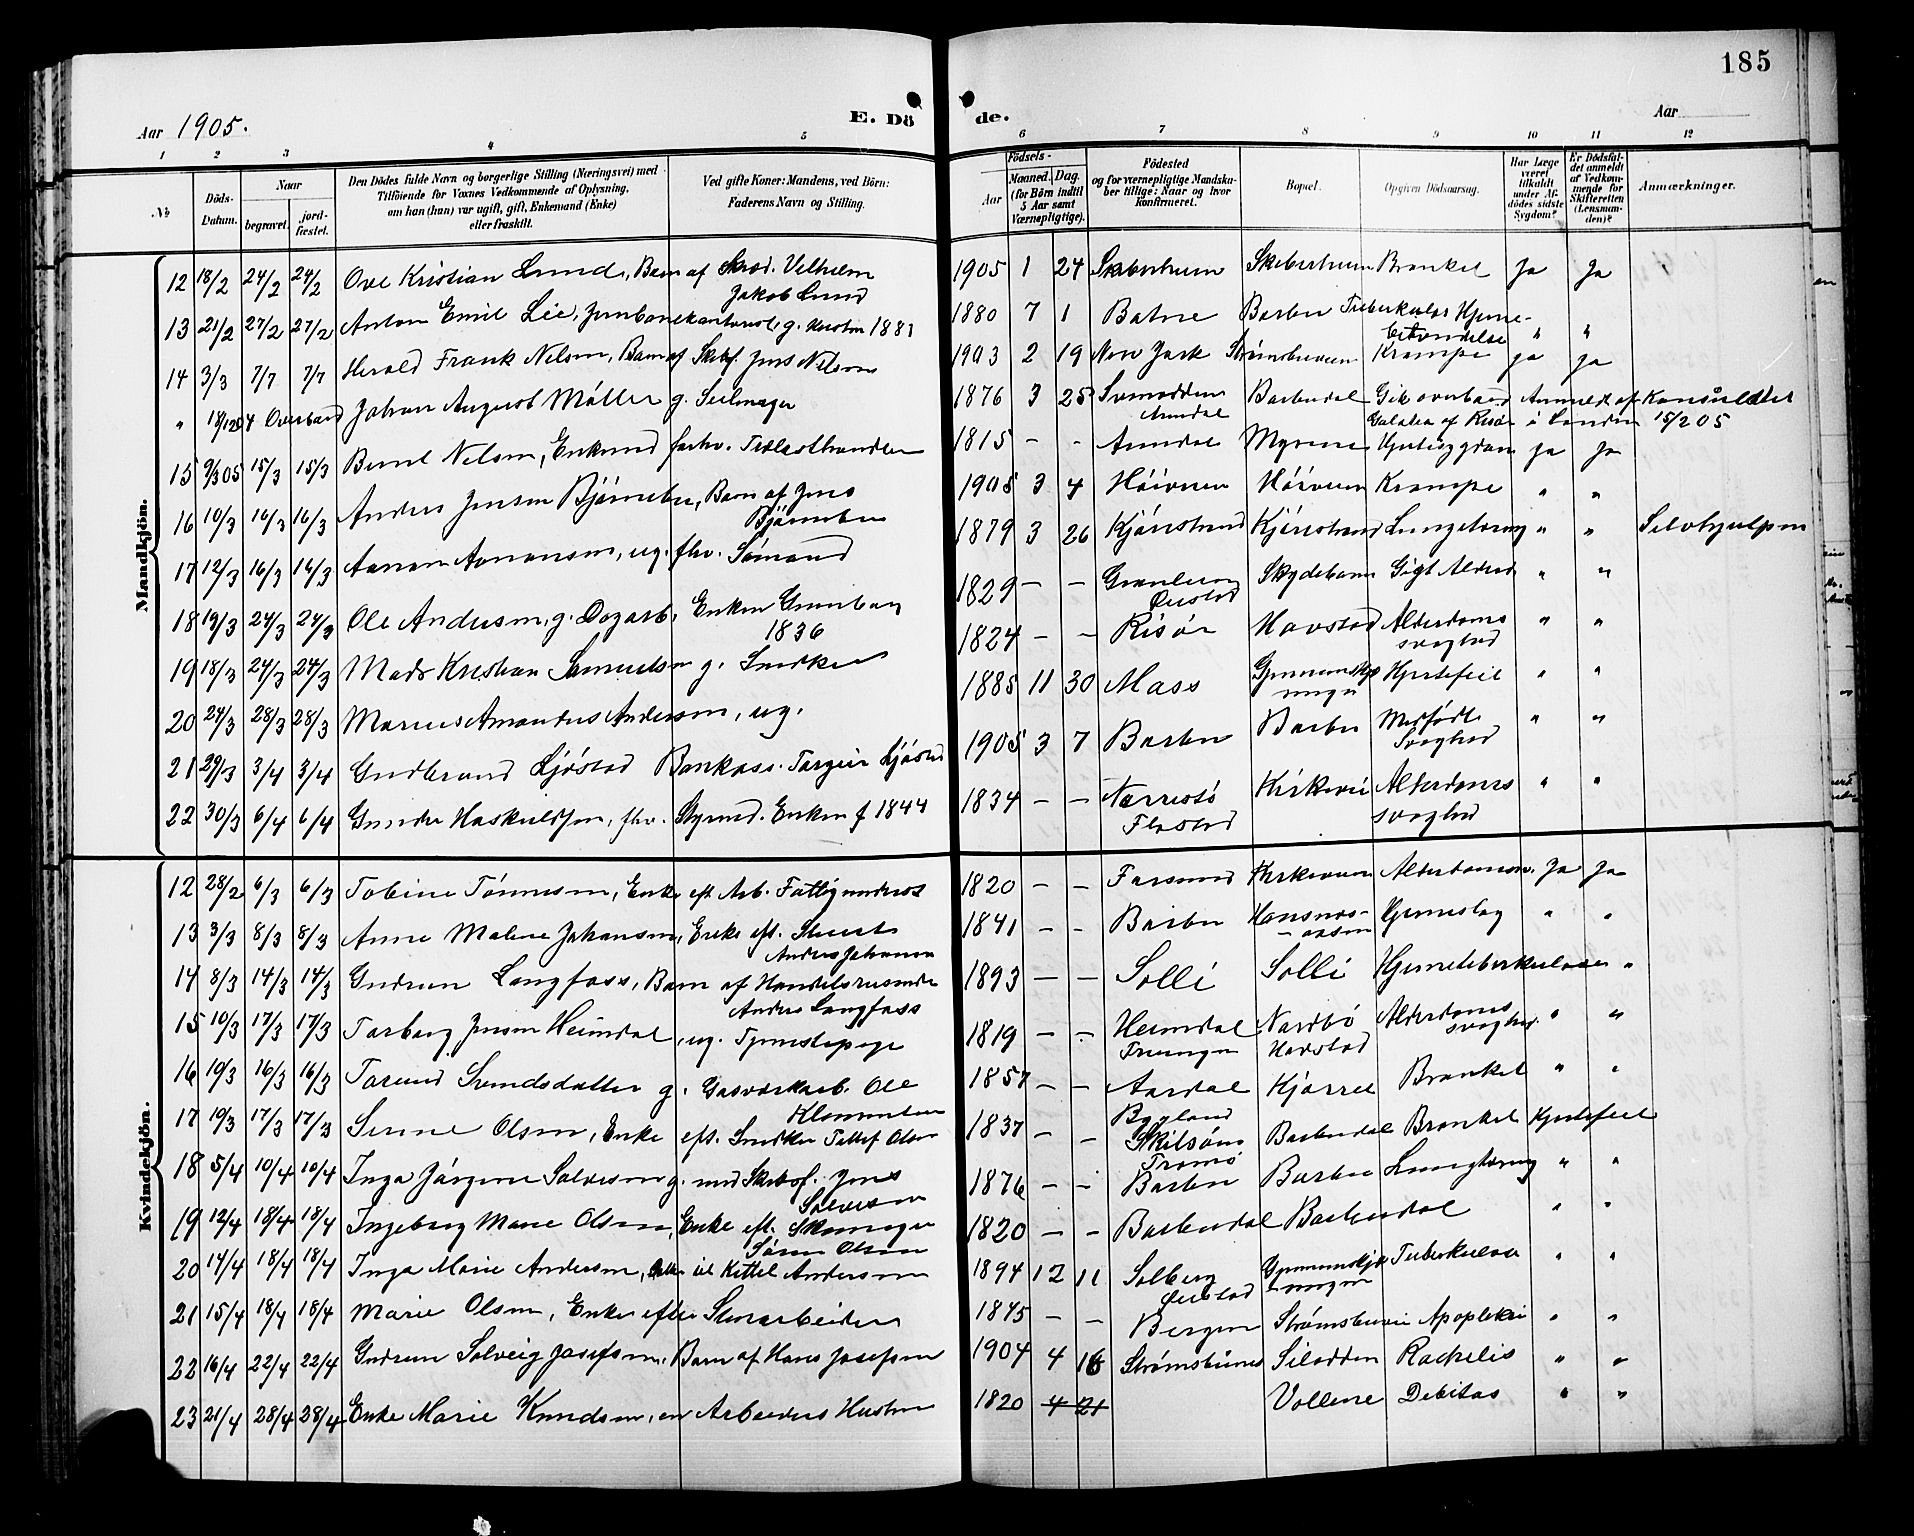 185
Aar 1905.
E. Dö de.
Aar
1 2 3 4 5 6 7 8 9 10 11 12
№
Döds-Datum.
Naar
begravet.
jord-fæstet.
Den Dödes fulde Navn og borgerlige Stilling (Næringsvei) med
Tilföiende for Voxnes Vedkommende af Oplysning,
om han (hun) var ugift, gift, Enkemand (Enke)
eller fraskilt.
Ved gifte Koner: Mandens, ved Börn:
Faderens Navn og Stilling.
Födsels-
Aar
Maaned. Dag.
(for Börn indtil
5 Aar samt
Værnepligtige).
Födested
og for værnepligtige Mandska-
ber tillige: Naar og hvor
Konstrueret.
Bopæl.
Opgiven Dödsaarsag.
Har Læge
været
tilkaldt
under Af-
dödes sidste
Sygdom?
Er Dödsfal-
det anmeldt
af Vedkom-
mende for
Skifteretten
(Lensman-
den)?
Anmærkninger.
Mandkjön.
12 18/2 24/2 24/2 Ove Kristian Lund, Barn af Skræd. Vilhelm Jakob Lund 1905 1 24 Skiberheien Skiberheien Bronkit Ja Ja
13 21/2 27/2 27/2 Anton Emil Lie, g. 1881 1880 7 1 Barbu Tuberkuløs Hjerne-betændelse " "
14 3/3 7/7 7/7 Herald Frank Nilsen, Barn af Jens Nilsen 1903 2 19 New York Strømsbuveien Krampe ja ja
" 18/12 04 Overbord Johan August Møller g. Seilmager 1876 3 25 Arendal Barbudal Gik overbord Galatea af Risør Anmeldt af Konsulatet i London 15/2 05
15 9/3 05 15/3 15/3 Bernt Nilsen, Enkemd forhv. 1815 - - Arendal Myrene ja ja
16 10/3 16/3 16/3 Anders Jensen Bjørnebu, Barn af Jens Bjørnebu 1905 3 4 Höiveien Höiveien Krampe " "
17 12/3 16/3 16/3 Aanon Aanonsen, ug. fhv. Sömand 1879 3 26 Kjöristrand Kjöristrand Lungetæring " " Selvhjulpen
18 19/3 24/3 24/3 Ole Andersen, g. Dagarb. 1836 1829 - - Öiestad Skydebanen Gigt Alderd " "
19 18/3 24/3 24/3 Mads Kristian Samuelsen g. Snedker 1824 - - Risør Havstad Alderdoms svaghed " "
20 24/3 28/3 28/3 Marius Amandus Andersen, ug. 1885 11 30 Mass Hjertefeil " "
21 29/3 3/4 3/4 Gudbrand Ljøstad Bankass. Torgeir Ljøstad 1905 3 7 Barbu Barbu Medfödt Svaghed " "
22 30/3 6/4 6/4 Gunder Haskildsen, fhv. Styrmd. Enkem f 1844 1834 - - Narrestö Flostad Kirkevei Alderdoms svaghed " "
Kvindekjön.
12 28/2 6/3 6/3 Tobine Tönnesen, Enke eft. Arb. Fattigunderst 1820 - - Farsund Kirkeveien Alderdomssv. Ja Ja
13 3/3 8/3 8/3 Anne Malene Johansen, Enke eft. Anders Johansen 1841 - - Barbu Hansnes-aasen Hjerneslag " "
14 8/3 14/3 14/3 Gudrun Langfoss, Barn af Handelsreisende Anders Langfoss 1893 - - Solli Solli Hjernetuberkulose "
15 10/3 17/3 17/3 Torborg Jensen Heimdal, ug. Tjenestepige 1819 - - Heimdal Nordbö Havstad Alderdoms svaghed " "
16 10/3 16/3 16/3 Torund Svendsdatter g. Gasværksarb. Ole 1857 - - Aardal Bygland Kjørrei Bronkit " "
17 10/3 17/3 17/3 Serine Olsen, Enke eft. Snedker Tellef Olsen 1837 - - Skilsöen Tromö Barbudal Bronkit Hjertefeil
18 5/4 10/4 10/4 Inga Jörgine Solvesen g. med Jens Solvesen 1876 - - Barbu Barbu Lungetæring " "
19 12/4 18/4 18/4 Ingeborg Marie Olsen, Enke eft. Skomager Sören Olsen 1820 - - Barbudal Barbudal " "
20 14/4 18/4 18/4 Inga Marie Andersen, datter til Kittel Andersen 1894 12 11 Solberg Öiestad Tuberkulose " "
21 15/4 18/4 18/4 Marie Olsen, Enke efter Stenarbeider 1845 - - Bergen Strømsbuvei Apopleksi " "
22 16/4 22/4 22/4 Gudrun Solveig Josefsen, Barn af Hans Josefsen 1904 4 16 Strømsbunes Silodden Rachitis " "
23 21/4 28/4 28/4 Enke Marie Knudsen, en Arbeiders Hustru 1820 4 21 Vollene Debitas " "